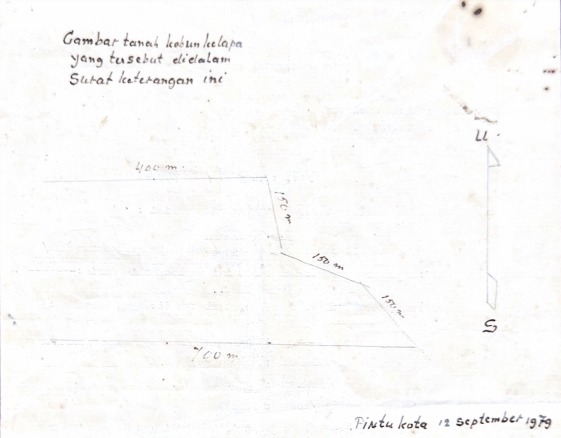 Gambar tanah kebun kelapa
yang tersebut didalam
Surat keterangan ini
U
400 m
150 m
150 m
150 m
S
700 m
Pintu kota 12 September 1979